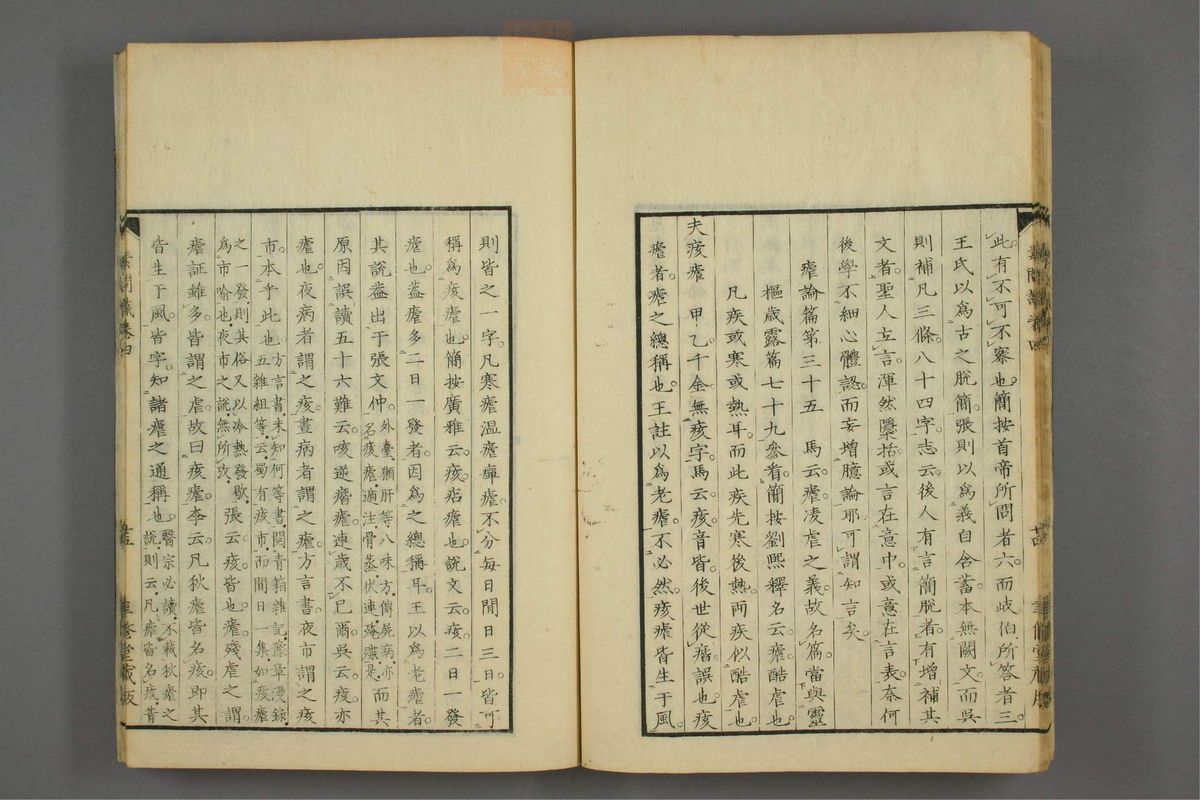 此有不可不察也簡按首帝所問者六而岐伯所答者三
王氏以為古之脫簡張則以為義自含蓄本無闕文而吳
則補凡三條八十四字志云後人有言簡脫者有增補其
文者聖人立言渾然檃括或言在意中或意在言表奈何
後學不細心體認而妄增臆論耶可謂知言矣
瘧論篇第三十五 馬云瘧凌虐之義故名篇當與靈
樞歲露篇七十九參看簡按劉熙釋名云瘧酷虐也
凡疾或寒或熱耳而此疾先寒後熱兩疾似酷虐也
夫痎瘧 甲乙千金無痎字馬云痎音皆後世從㾬誤也痎
瘧者瘧之總稱也王註以為老瘧不必然痎瘧皆生于風
則皆之一字凡寒瘧温瘧癉瘧不分每日間日三日皆可
稱為痎瘧也簡按廣雅云痎痁瘧也說文云痎二日一發
瘧也葢瘧多二日一發者因為之總稱耳王以為老瘧者
其說葢出于張文仲外臺獺肝等八味方傳屍病亦名痎瘧遁注骨蒸伏連殗殜是而其
原因誤讀五十六難云咳逆㾬瘧連歲不已爾吳云痎亦
瘧也夜病者謂之痎晝病者謂之瘧方言書夜市謂之痎
市本乎此也方言書未知何等書閱青箱雜記豫章漫録五雜組等云蜀有痎市而間日一集如痎瘧
之一發則其俗又以冷熱發歇為市喻也夜市之說無所攷張云痎皆也瘧殘虐之謂
瘧証雖多皆謂之虐故曰痎瘧李云凡秋瘧皆名痎即其
皆生于風皆字知諸瘧之通稱也醫宗必讀不載秋瘧之說則云凡瘧皆名痎昔
素問識卷四
聿修堂藏板